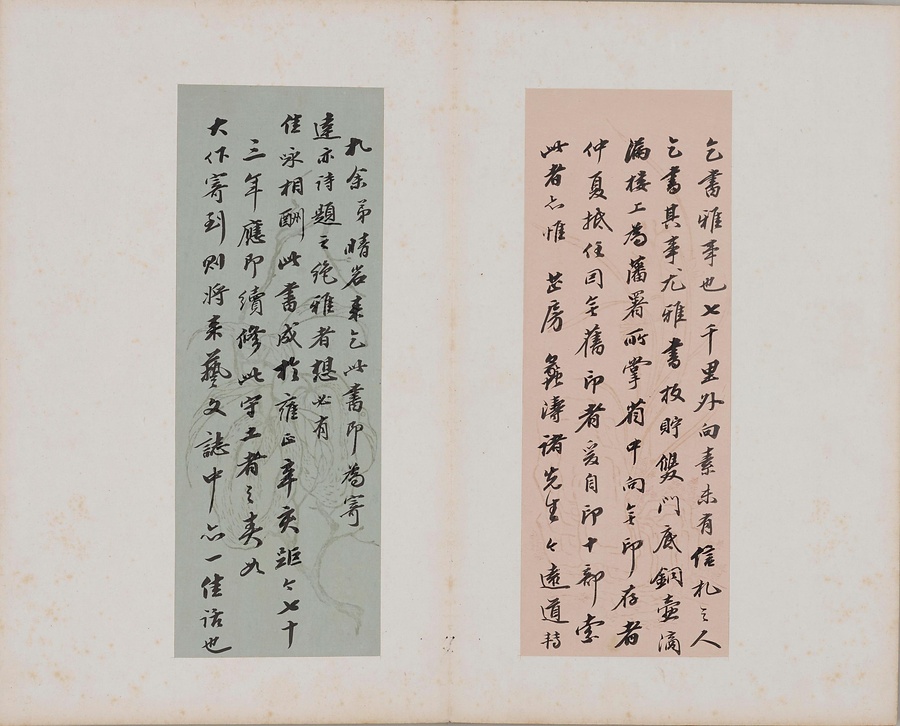 乞書雅事也七千里外向素未有信札之人
乞書其事尤雅書板貯雙門底銅壺滴
漏樓上為藩署所掌前中向無印存者
仲夏抵任因無舊印者爰自印十部索
此者亦惟芷房 濤諸先生今遠道持
札余弟晴岩來乞此書即為寄
達亦詩題之絕雅者想必有
佳咏相酬此書成於雍正辛亥距今七十
三年應即續修此守土者之責如
大作寄到則將來藝文誌中亦一佳話也